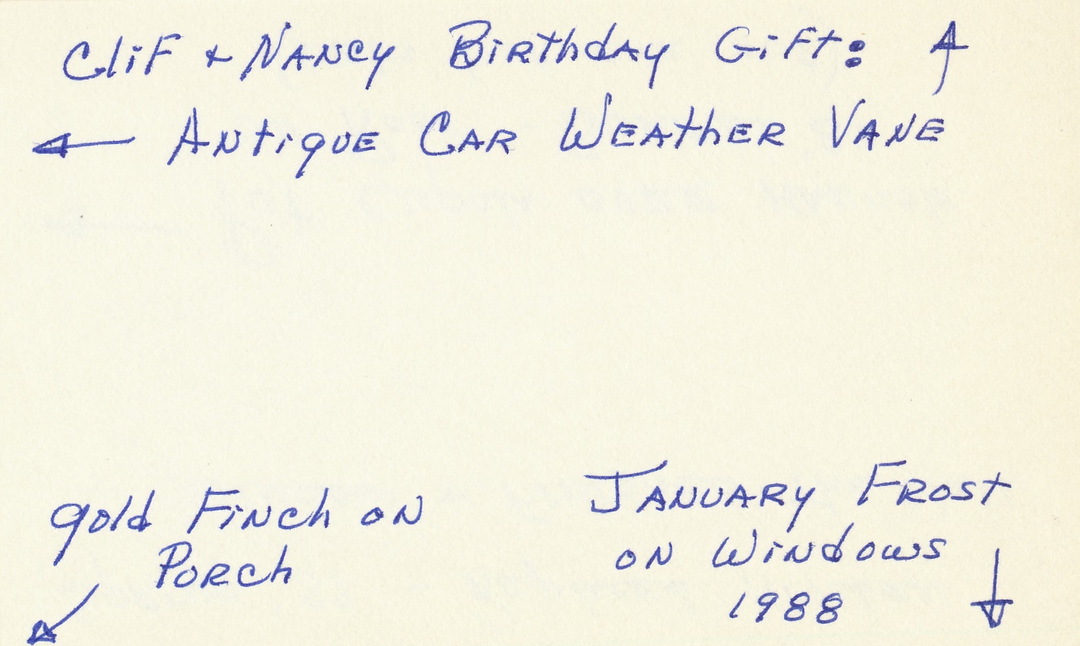 Clif + Nancy Birthday Gift: ↑
← Antique Car Weather Vane
gold Finch on
Porch
↙
January Frost
on Windows
1988 ↓